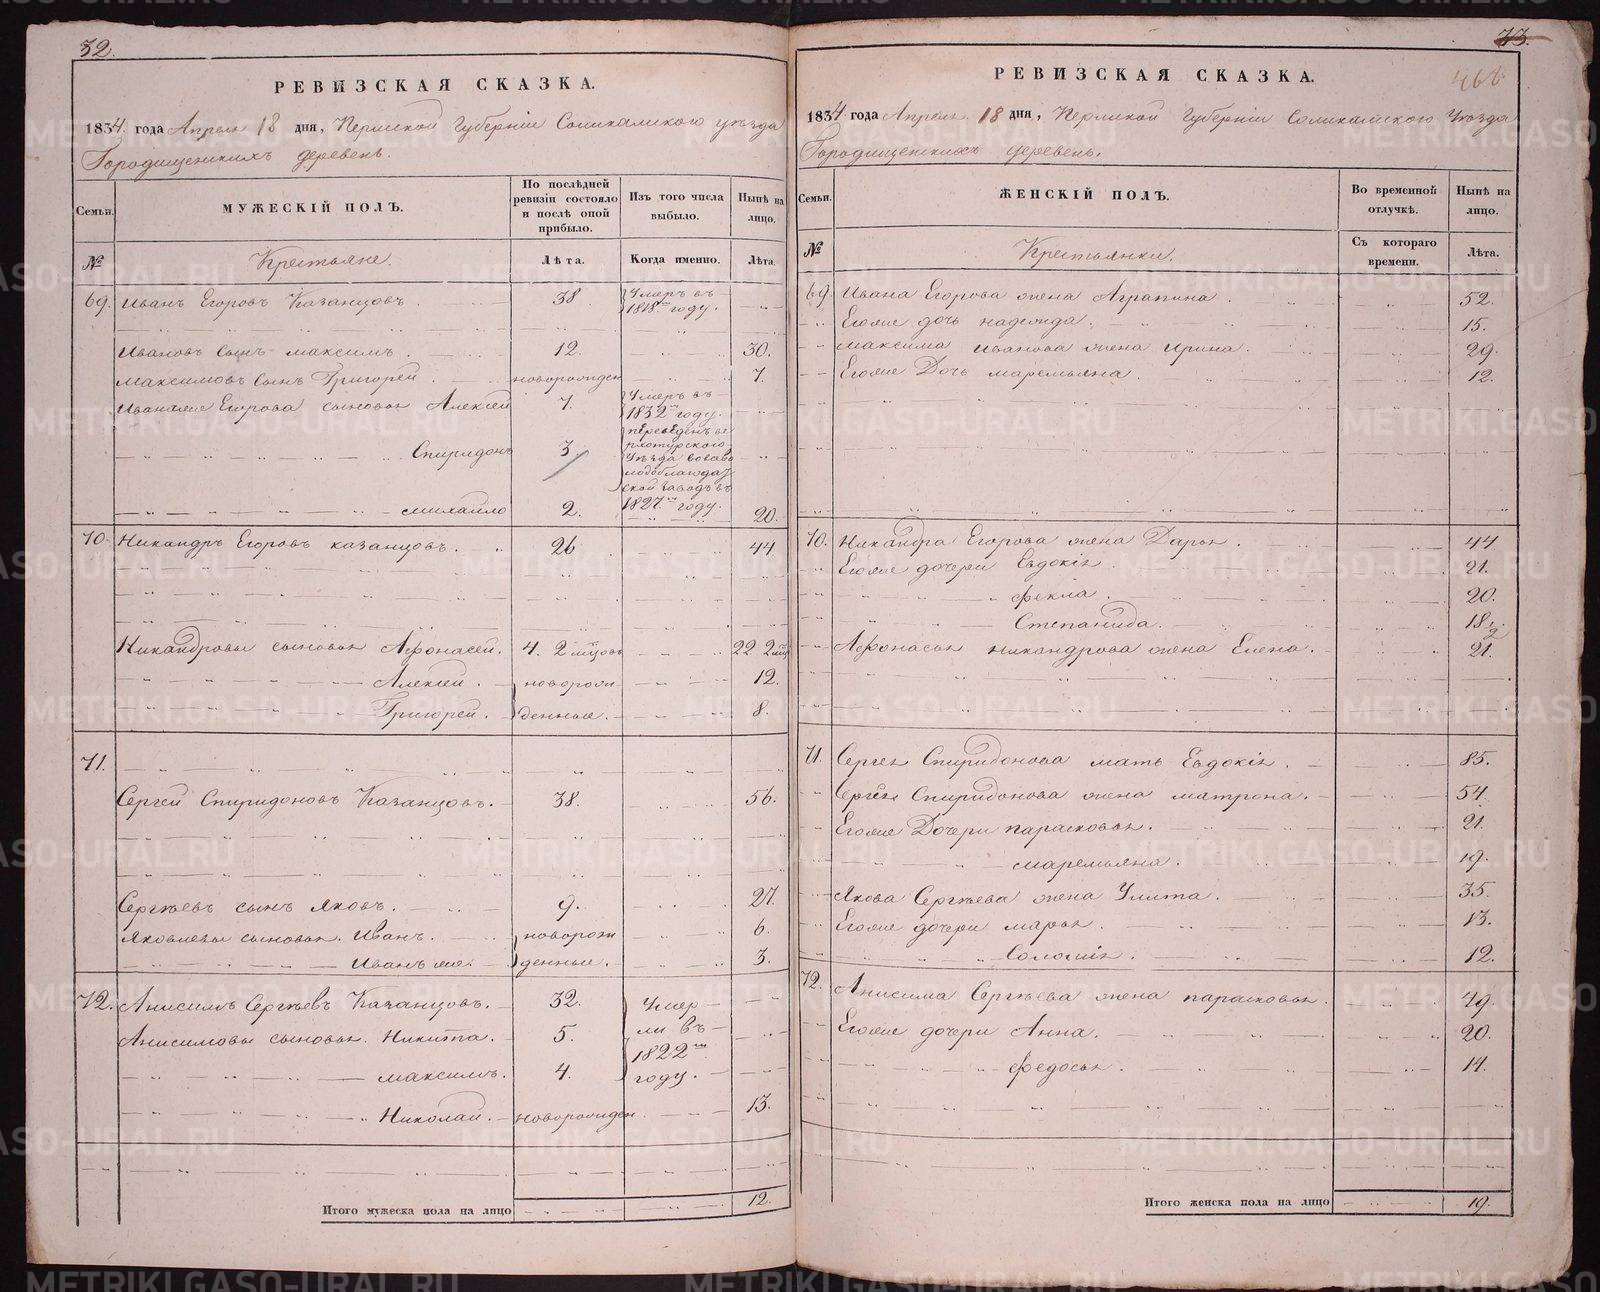 32.
РЕВИЗСКАЯ СКАЗКА.
1834 года Апреля 18 дня, Пермской Губернiи Соликамского уѣзда
Городищенскихъ деревень.
Семьи.
МУЖЕСКIЙ ПОЛЪ.
По послѣдней ревизiи состояло и послѣ оной прибыло.
Изъ того числа выбыло.
Нынѣ на лицо.
№
Крестьяне.
Лѣта.
Когда именно.
Лѣта.
69. Иванъ Егоровъ Казанцовъ. 38 Умеръ въ 1818мъ году.
Ивановъ сынъ максимъ. 12. 30.
Максимовъ сынъ Григорей. новорожден 7.
Иванаже Егорова сыновья Алексей 7. Умеръ въ 1832мъ году.
Спиридонъ 3 переведенъ уѣзда заводъ въ 1827мъ году.
михайло 2. 20.
70. Никандръ Егоровъ казанцовъ. 26 44.
Никандровы сыновья Афонасей. 4. 2 мцовъ 22 2 мц
Алексей. новорож 12.
Григорей. денные. 8.
71.
Сергей Спиридоновъ Казанцовъ. 38. 56.
Сергѣевъ сынъ Яковъ. 9. 27.
Яковлевы сыновья. Иванъ. новорож 6.
Иванъ же. денные. 3.
72. Анисимъ Сергѣевъ Казанцовъ. 32. Умер
Анисимовы сыновья. Никита. 5. ли въ
максимъ. 4. 1822мъ году.
Николай. новорожден. 13.
Итого мужеска пола на лицо 12.
73.
466
РЕВИЗСКАЯ СКАЗКА.
1834 года Апреля 18 дня, Пермской Губернiи Соликамского Уѣзда
Городищенскихъ деревень.
Семьи.
ЖЕНСКIЙ ПОЛЪ.
Во временной отлучкѣ.
Нынѣ на лицо.
№
Крестьянки.
Съ котораго времени.
Лѣта.
69. Ивана Егорова жена Аграпина. 52.
Егоже дочь надежда. 15.
максима Иванова жена Ирина. 29.
Егоже Дочь маремьяна. 12.
70. Никандра Егорова жена Дарья. 44.
Егоже дочери Евдокiя. 21.
фекла. 20.
Степанида. 18 1/2
Афонасья никандрова жена Елена. 21.
71. Сергея Спиридонова мать Евдокiя. 85.
Сергея Спиридонова жена матрона. 54.
Егоже Дочери парасковья. 21.
маремьяна. 19.
Якова Сергѣева жена Улита. 35.
Егоже дочери марья. 13.
Соломiя. 12.
72. Анисима Сергѣева жена парасковья. 49.
Егоже дочери Анна. 20.
федосья. 14.
Итого женска пола на лицо 19.
METRIKI.GASO-URAL.RU